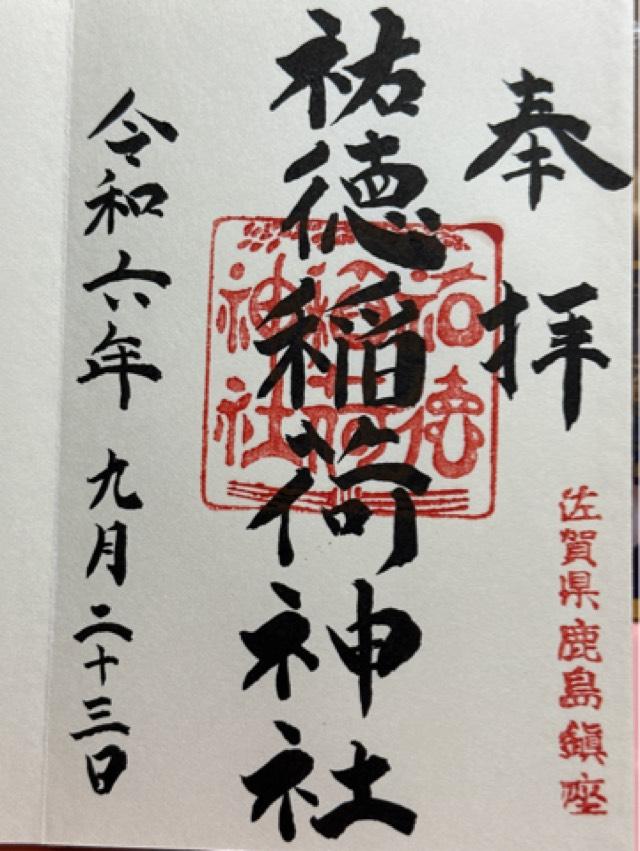 奉拝
佐賀県鹿島鎮座
祐徳稲荷神社
祐徳
稲荷
神社
令和六年九月二十三日